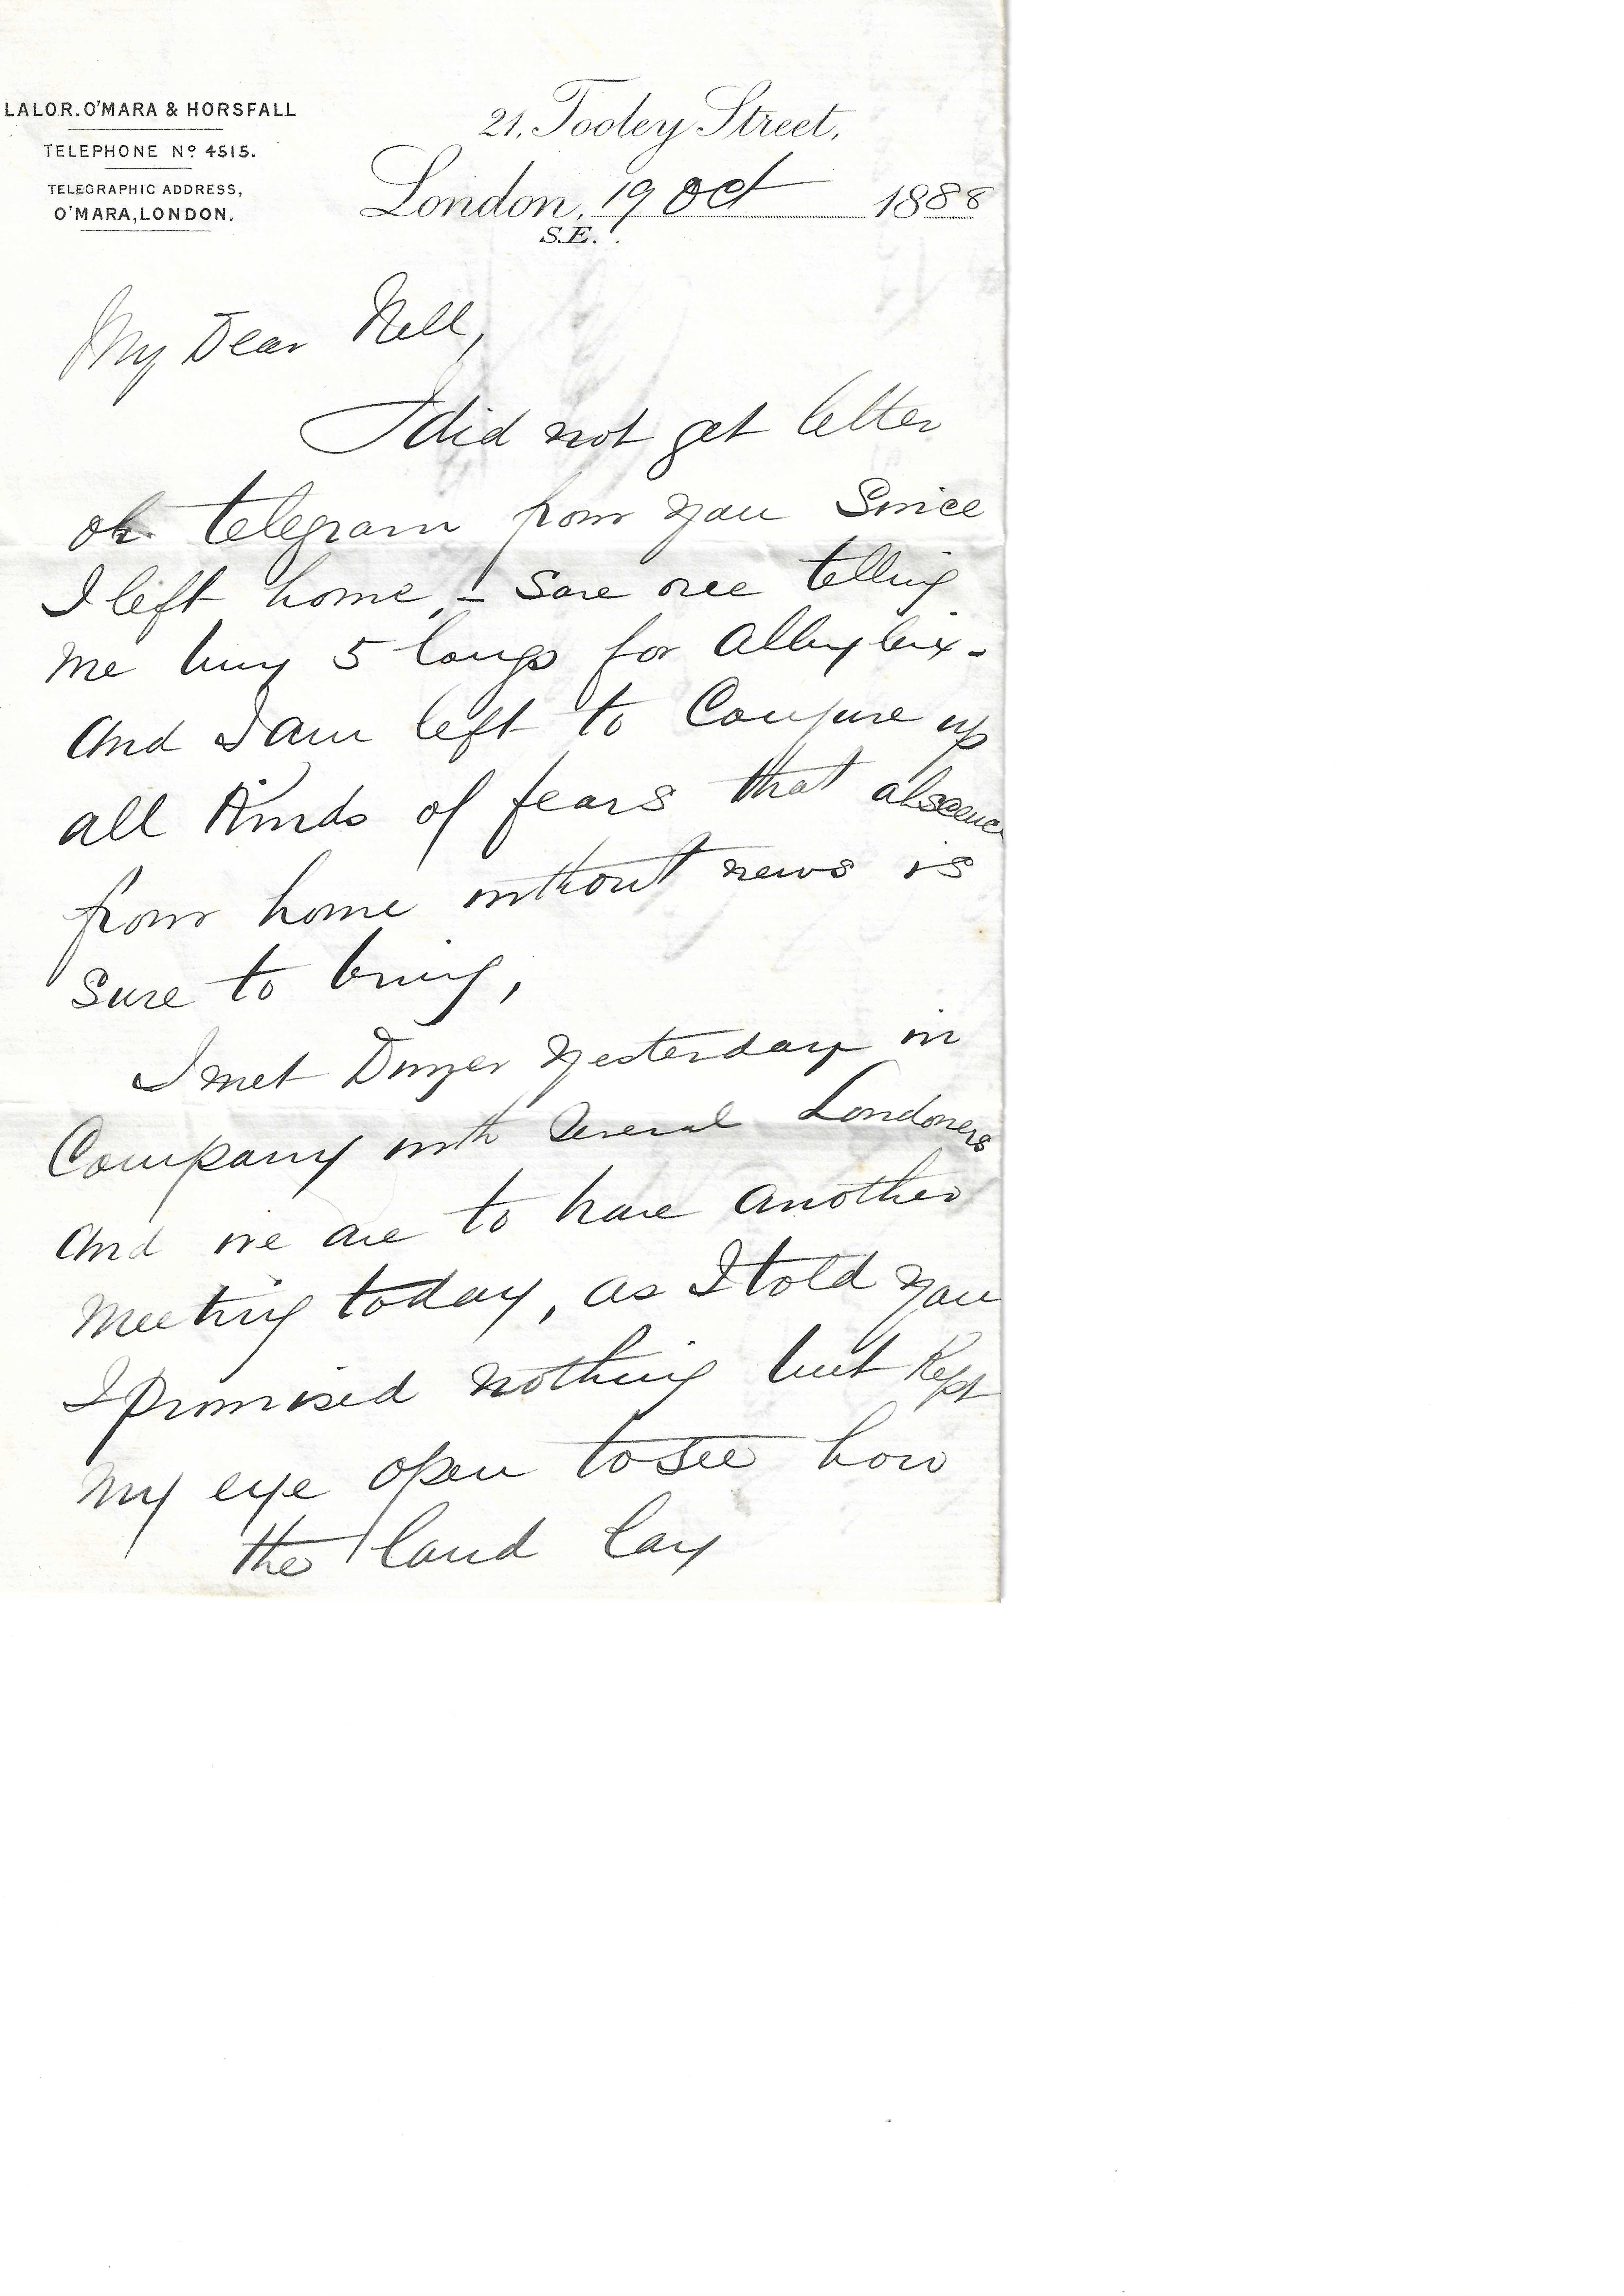 LALOR. O'MARA & HORSFALL
TELEPHONE Nº 4515.
TELEGRAPHIC ADDRESS,
O'MARA, LONDON.
21, Tooley Street,
London, 19 Oct 1888
S.E.
My Dear Nell,
I did not get letter
or telegram from you Since
I left home, - Save one telling
me buy 5 longs for
and I am left to Conjure up
all Kinds of fears that abscence
from home without news is
Sure to bring,
I met Dwyer yesterday in
Company with Several Londoners
and we are to have another
Meeting today, as I told you
I promised nothing but Kept
my eye open to see how
the land lay